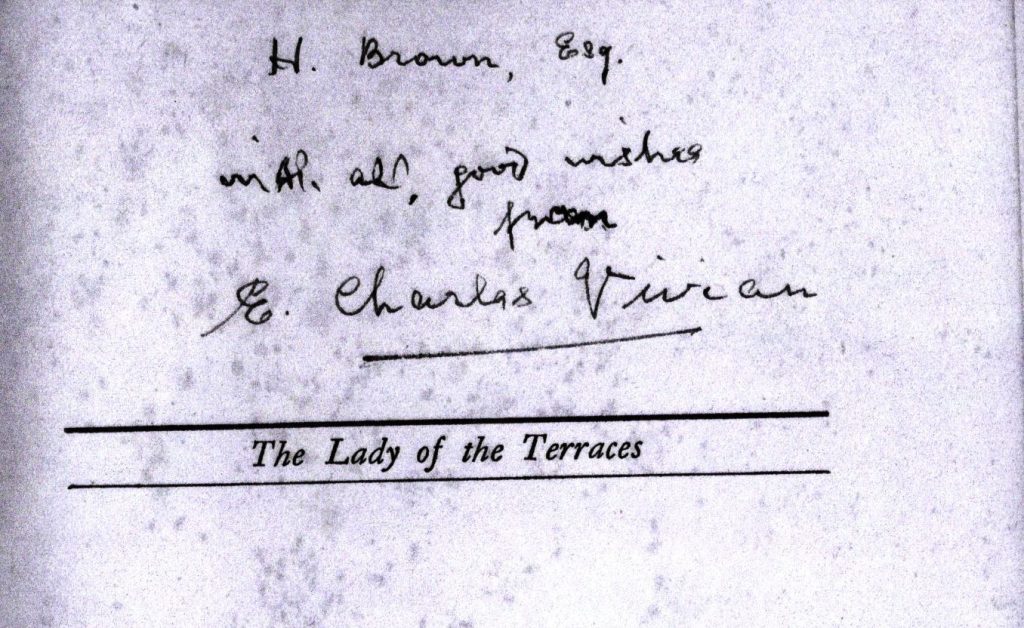 H. Brown, Esq.
with all good wishes
from
E. Charles Vivian
The Lady of the Terraces